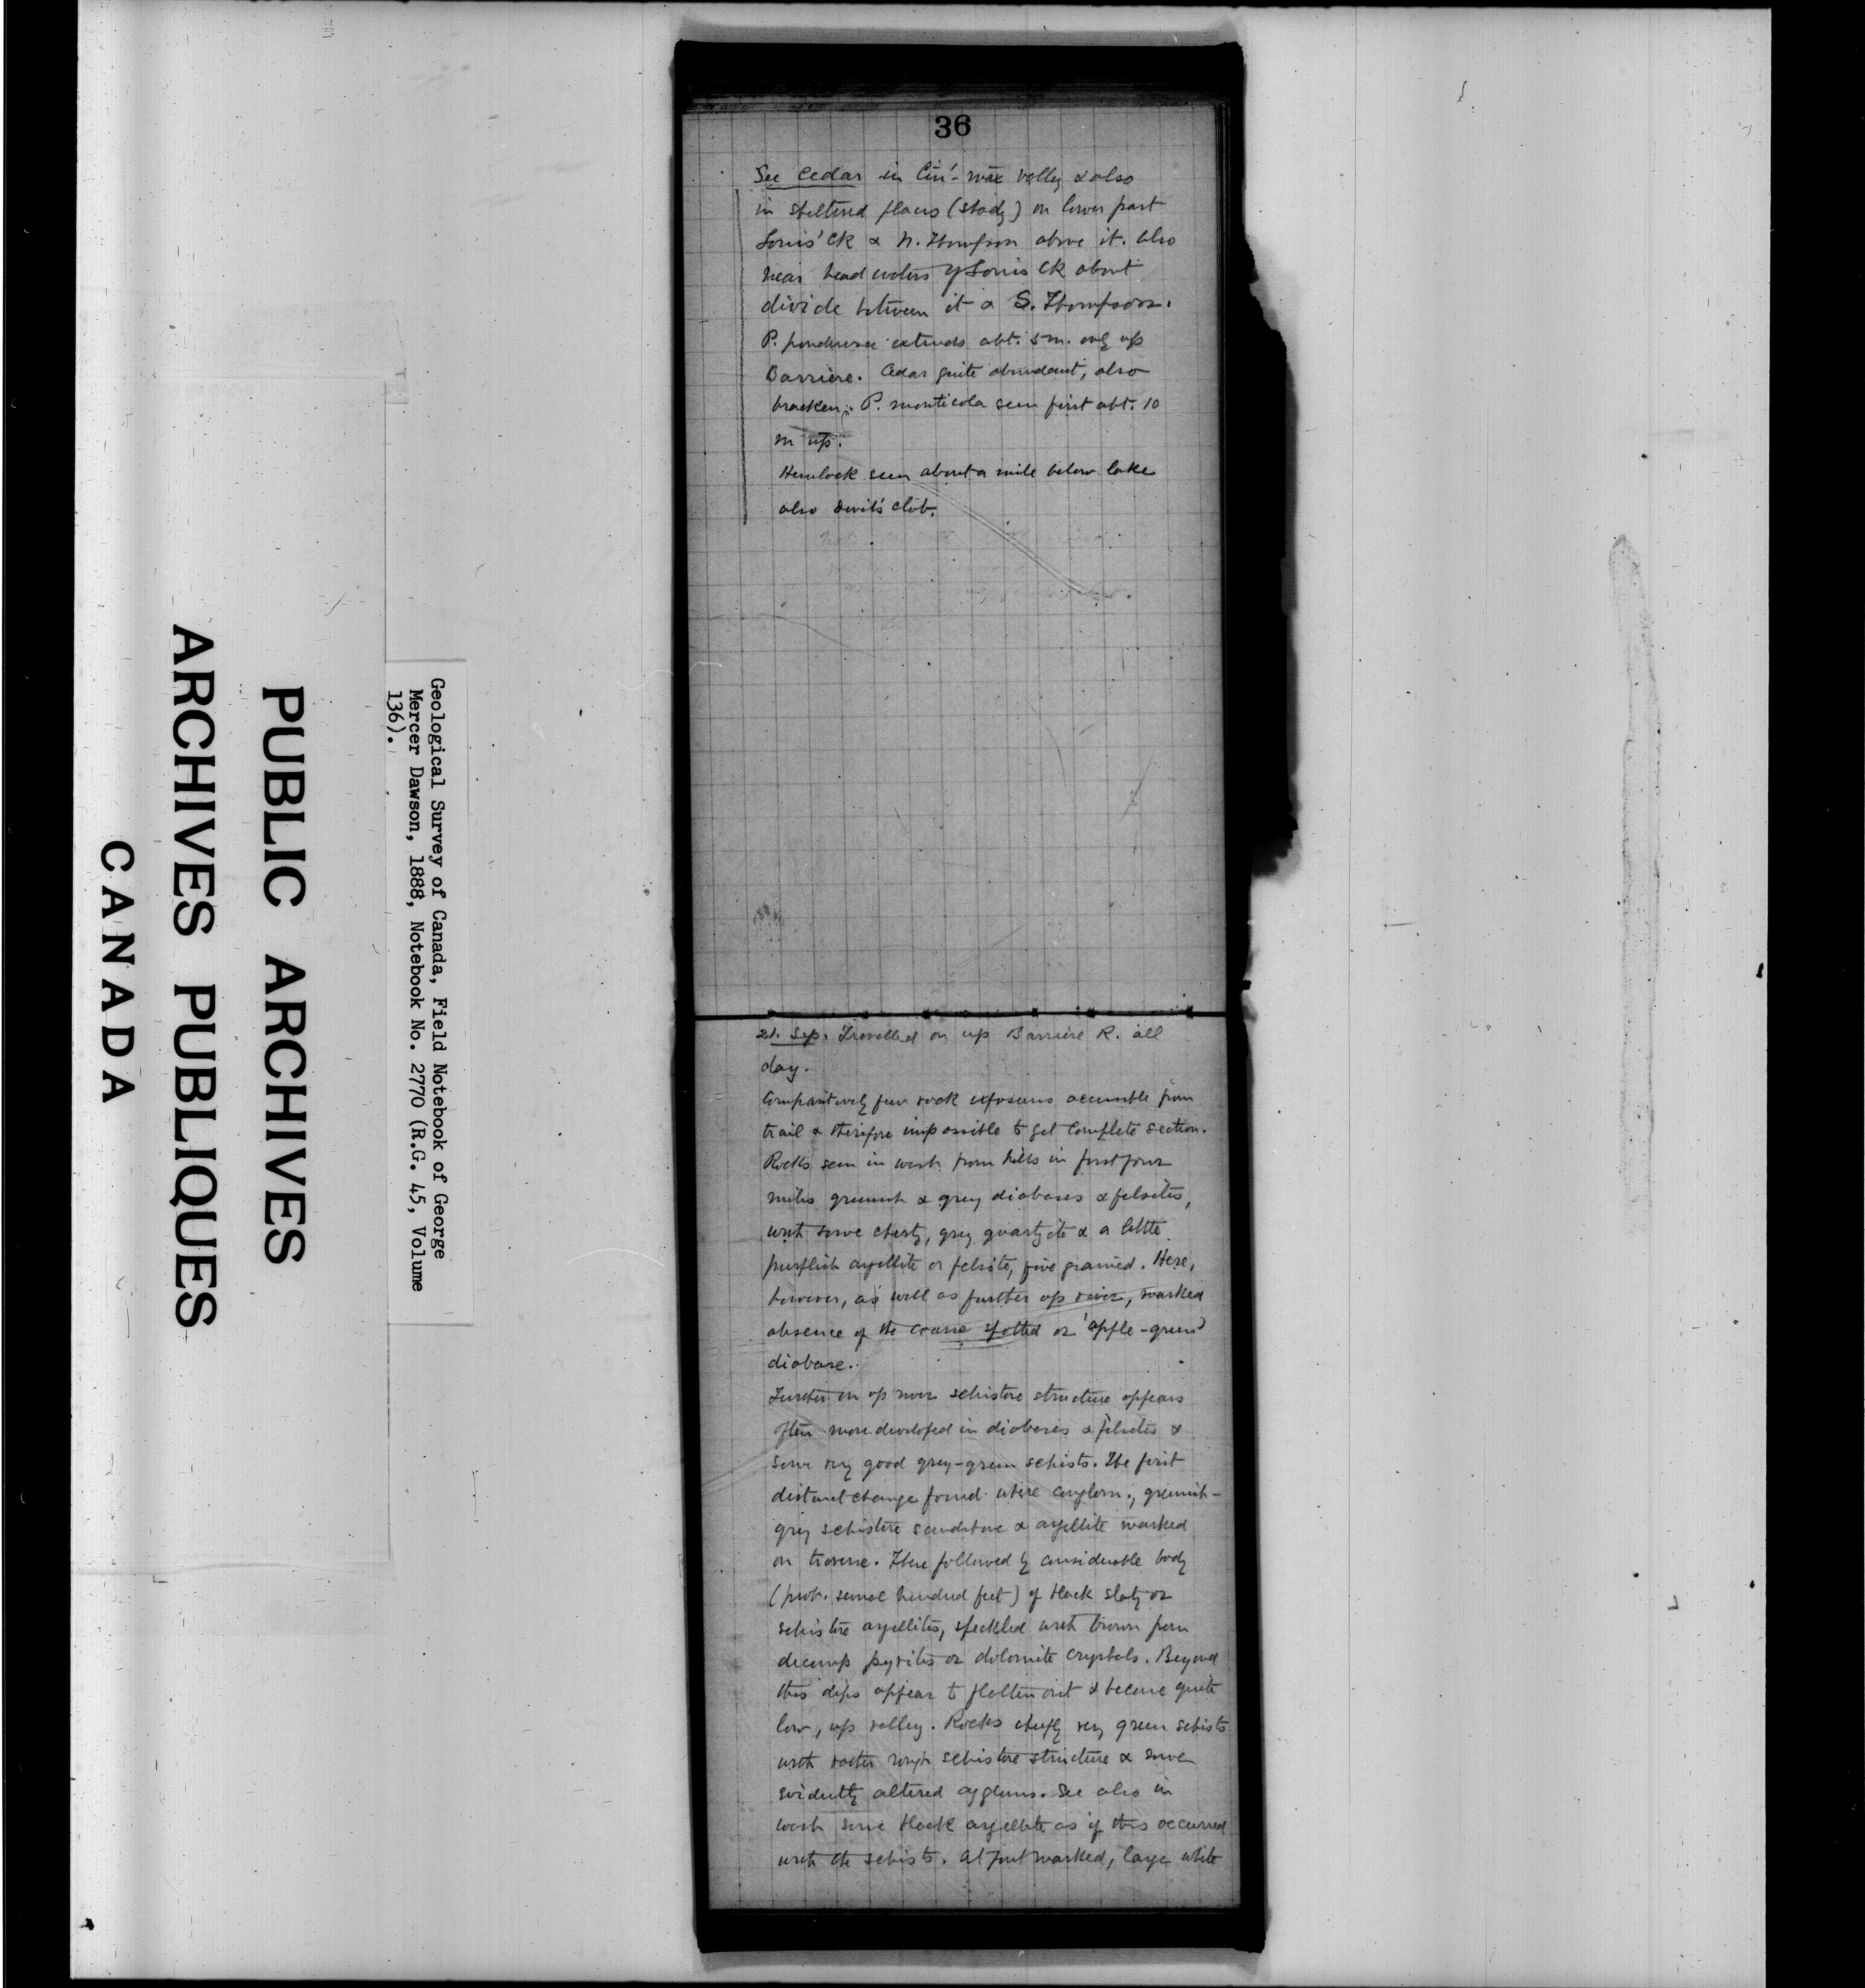 36
See Cedar in Cin'- valley & also
in sheltered places (shady) on lower part
Louis' Ck & N. Thompson above it. Also
near head waters of Louis Ck about
divide between it & S. Thompson.
P. ponderosa extends abt. 5 m. only up
Barrière. Cedar quite abundant, also
bracken. P. monticola seen first abt. 10
m up.
Hemlock seen about a mile below lake
also Devil's club.
21. Sep. Travelled on up Barrière R. all
day.
Comparitively few rock exposures accessible from
trail & therefore impossible to get complete section.
Rocks seen in wash from hills in first four
miles greenish & grey diabases & felsites,
with some cherty, grey quartzite & a little
purplish argillite or felsite, fine grained. Here,
however, as well as further up river, marked
absence of the coarse spotted or 'apple-green'
diabase.
Further on up river schistose structure appears
often more developed in diabases & felsites &
some very good grey-green schists. The first
distinct change found where conglom., greenish-
grey schistose sandstone & argillite marked
on traverse. These followed by considerable body
(prob. several hundred feet) of black slaty or
schistose argillites, speckled with brown from
decomp pyrites or dolomite crystals. Beyond
this dips appear to flatten out & become quite
low, up valley. Rocks chiefly very green schists
with rather rough schistose structure & some
evidently altered aggloms. See also in
wash some black argillite as if this occurred
with the schists. At point marked, large white
Geological Survey of Canada, Field Notebook of George
Mercer Dawson, 1888, Notebook No. 2770 (R.G. 45, Volume
136).
PUBLIC ARCHIVES
ARCHIVES PUBLIQUES
CANADA